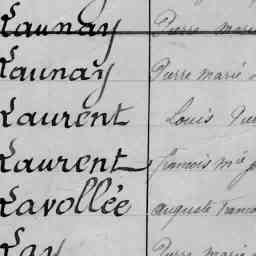 Launay Pierre marie
Launay Pierre marié
Laurent Louis Pier
Laurent francois mie
Lavollée auguste franco
Lay Pierre marie